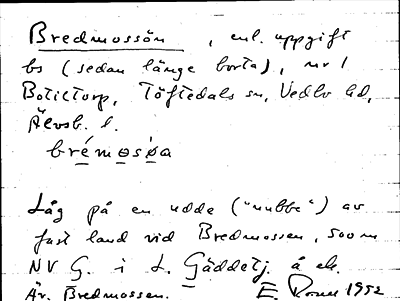 Bredmossön, enl. uppgift
bs (sedan länge borta), nr 1
Botictorp, Töftedals sn, Vedbo hd,
Älvsb. l.
brémosǿa
Låg på en udde ("nubbe") av
fast land vid Bredmossen, 500 m
NV G. i L. Gäddetj. å ek.
Är. Bredmossen. E. 1952